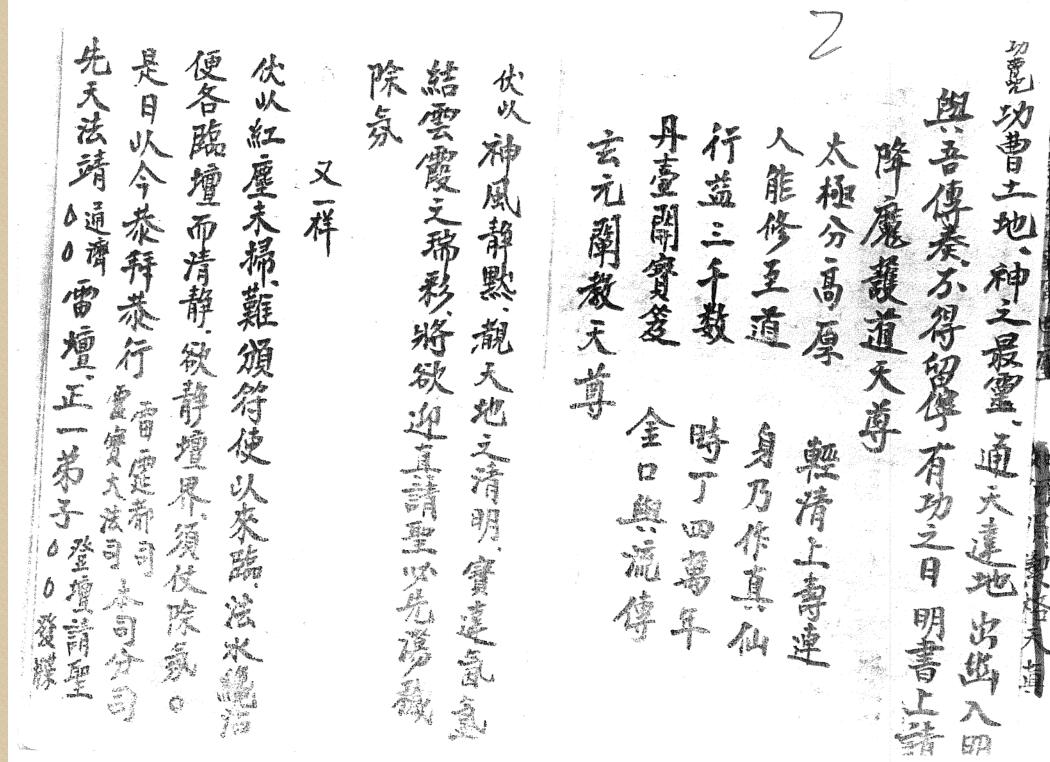 2
功曹咒
功曹土地、神之最靈、通天達地 出幽入明
與吾傳奏、不得留停 有功之日 明書上請
降魔護道天尊
太極分高厚 輕清上壽連
人能修至道 身乃作真仙
行益三千数 時丁四萬年
丹臺開寶笈 金口與流傳
玄元闡教天尊
伏以 神風静黙、覩天地之清明、寶達氤氲
結雲霞之瑞彩、將欲迎真請聖必先蕩穢
除氛
又一样
伏以紅塵未掃、難頒符使以來臨、法水
便各臨壇而清静、欲静壇界、須仗除氛。
是日以今恭拜恭行 雷霆都司 靈寶大法司 本司分司
先天法靖 通濟 雷壇、正一弟子 登壇請聖 發牒